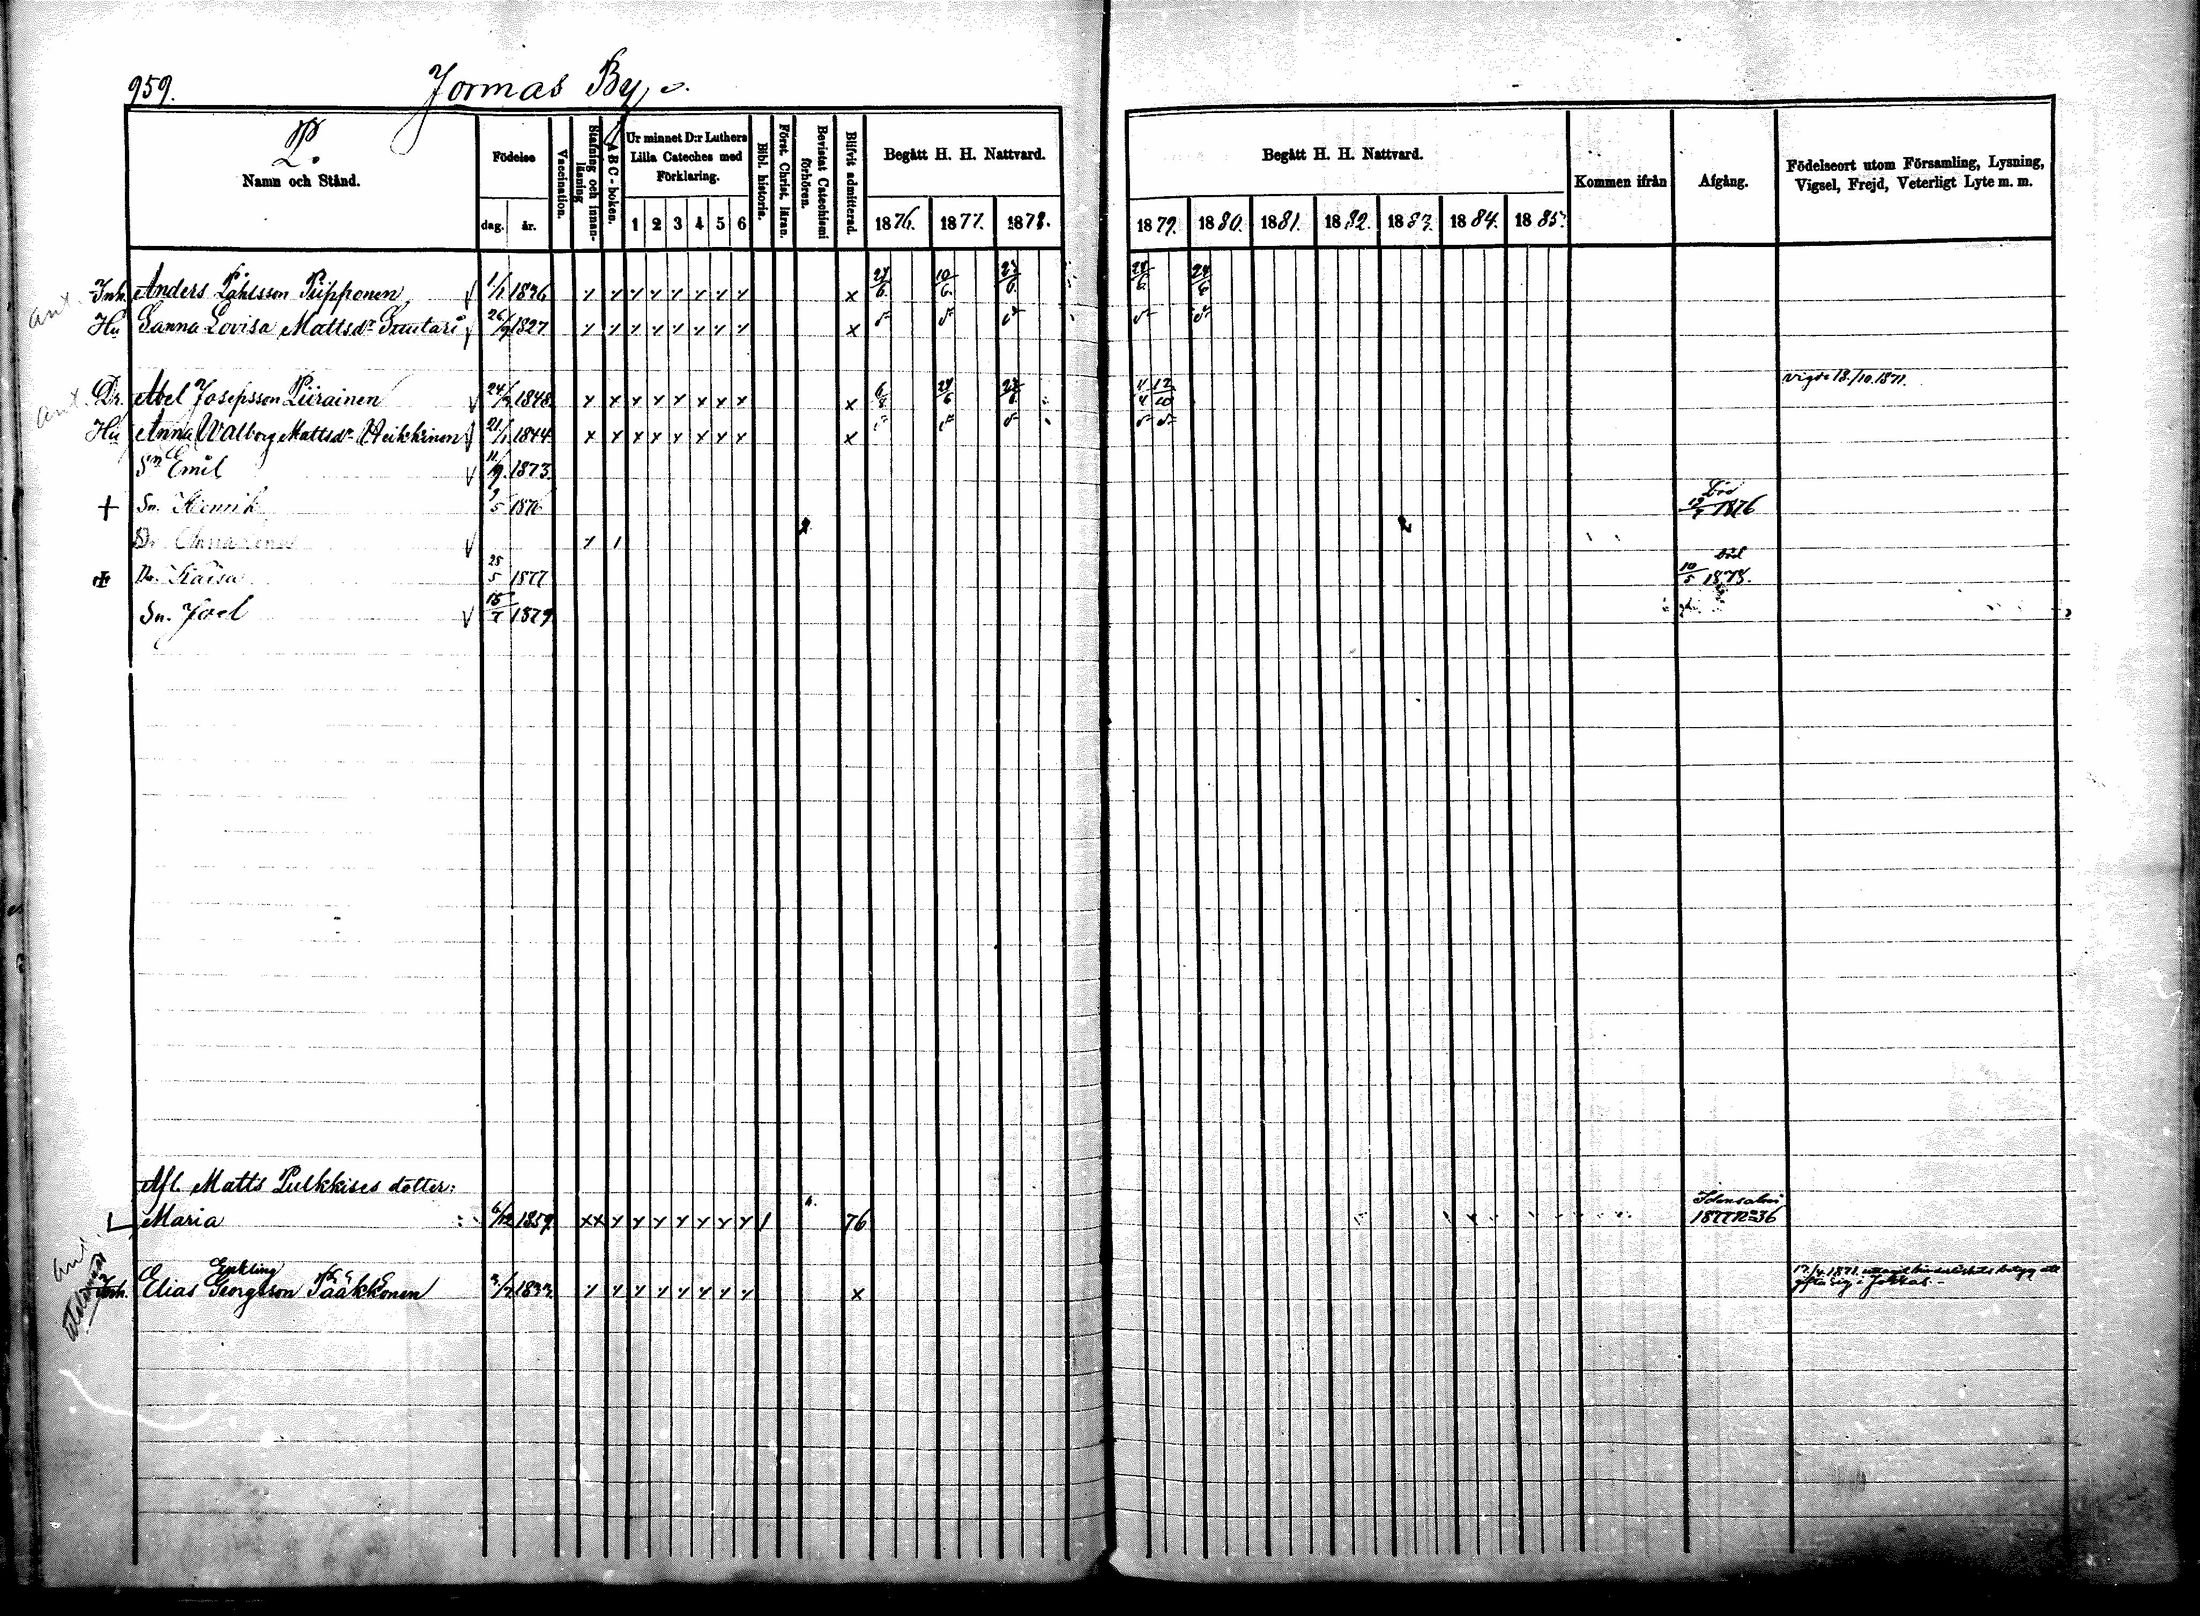 959.
Jormas By
P.
Namn och Stånd.
Födelse
dag. år.
Vaccination.
Stafning och innan-läsning
A B C-boken.
Ur minnet D:r Luthers Lilla Cateches med Förklaring.
1 2 3 4 5 6
Bibl. historia.
Först. Christ. läran.
Bevistat Catechismi förhören.
Blifvit admitterad.
Begått H. H. Nattvard.
1876. 1877. 1878.
Begått H. H. Nattvard.
1879. 1880. 1881. 1882. 1883. 1884. 1885.
Kommen ifrån
Afgång.
Födelseort utom Församling, Lysning, Vigsel, Frejd, Veterligt Lyte m. m.
Inh. Anders Påhlsson Piipponen 1/1 1836 x x x x x x x x x 10/6 24/6
Hu Sanna Lovisa Mattsdr 26/9 1827 x x x x x x x x x
Dr. Abel Josepsson Piirainen 1848 x x x x x x x x x 24/6 12/10 vigde 18/10 1871.
Hu Anna Walborg Mattsdr Heikkinen 21/1 1844 x x x x x x x x x
Sn Emil 11/9 1873.
+ Sn. Henrik 1876 Död 1876
Dr. Anna x 1
Dr. Kaisa 25/5 1877 Död 10/5 1878.
Sn. Joel 1879
Afl. Matts Pulkkises dotter:
Maria 6/12 1859 xx x x x x x x x 1 76 Idensalmi 1877 No 36
Enkling
Inh. Elias Georgsson Pääkkonen x x x x x x x x x